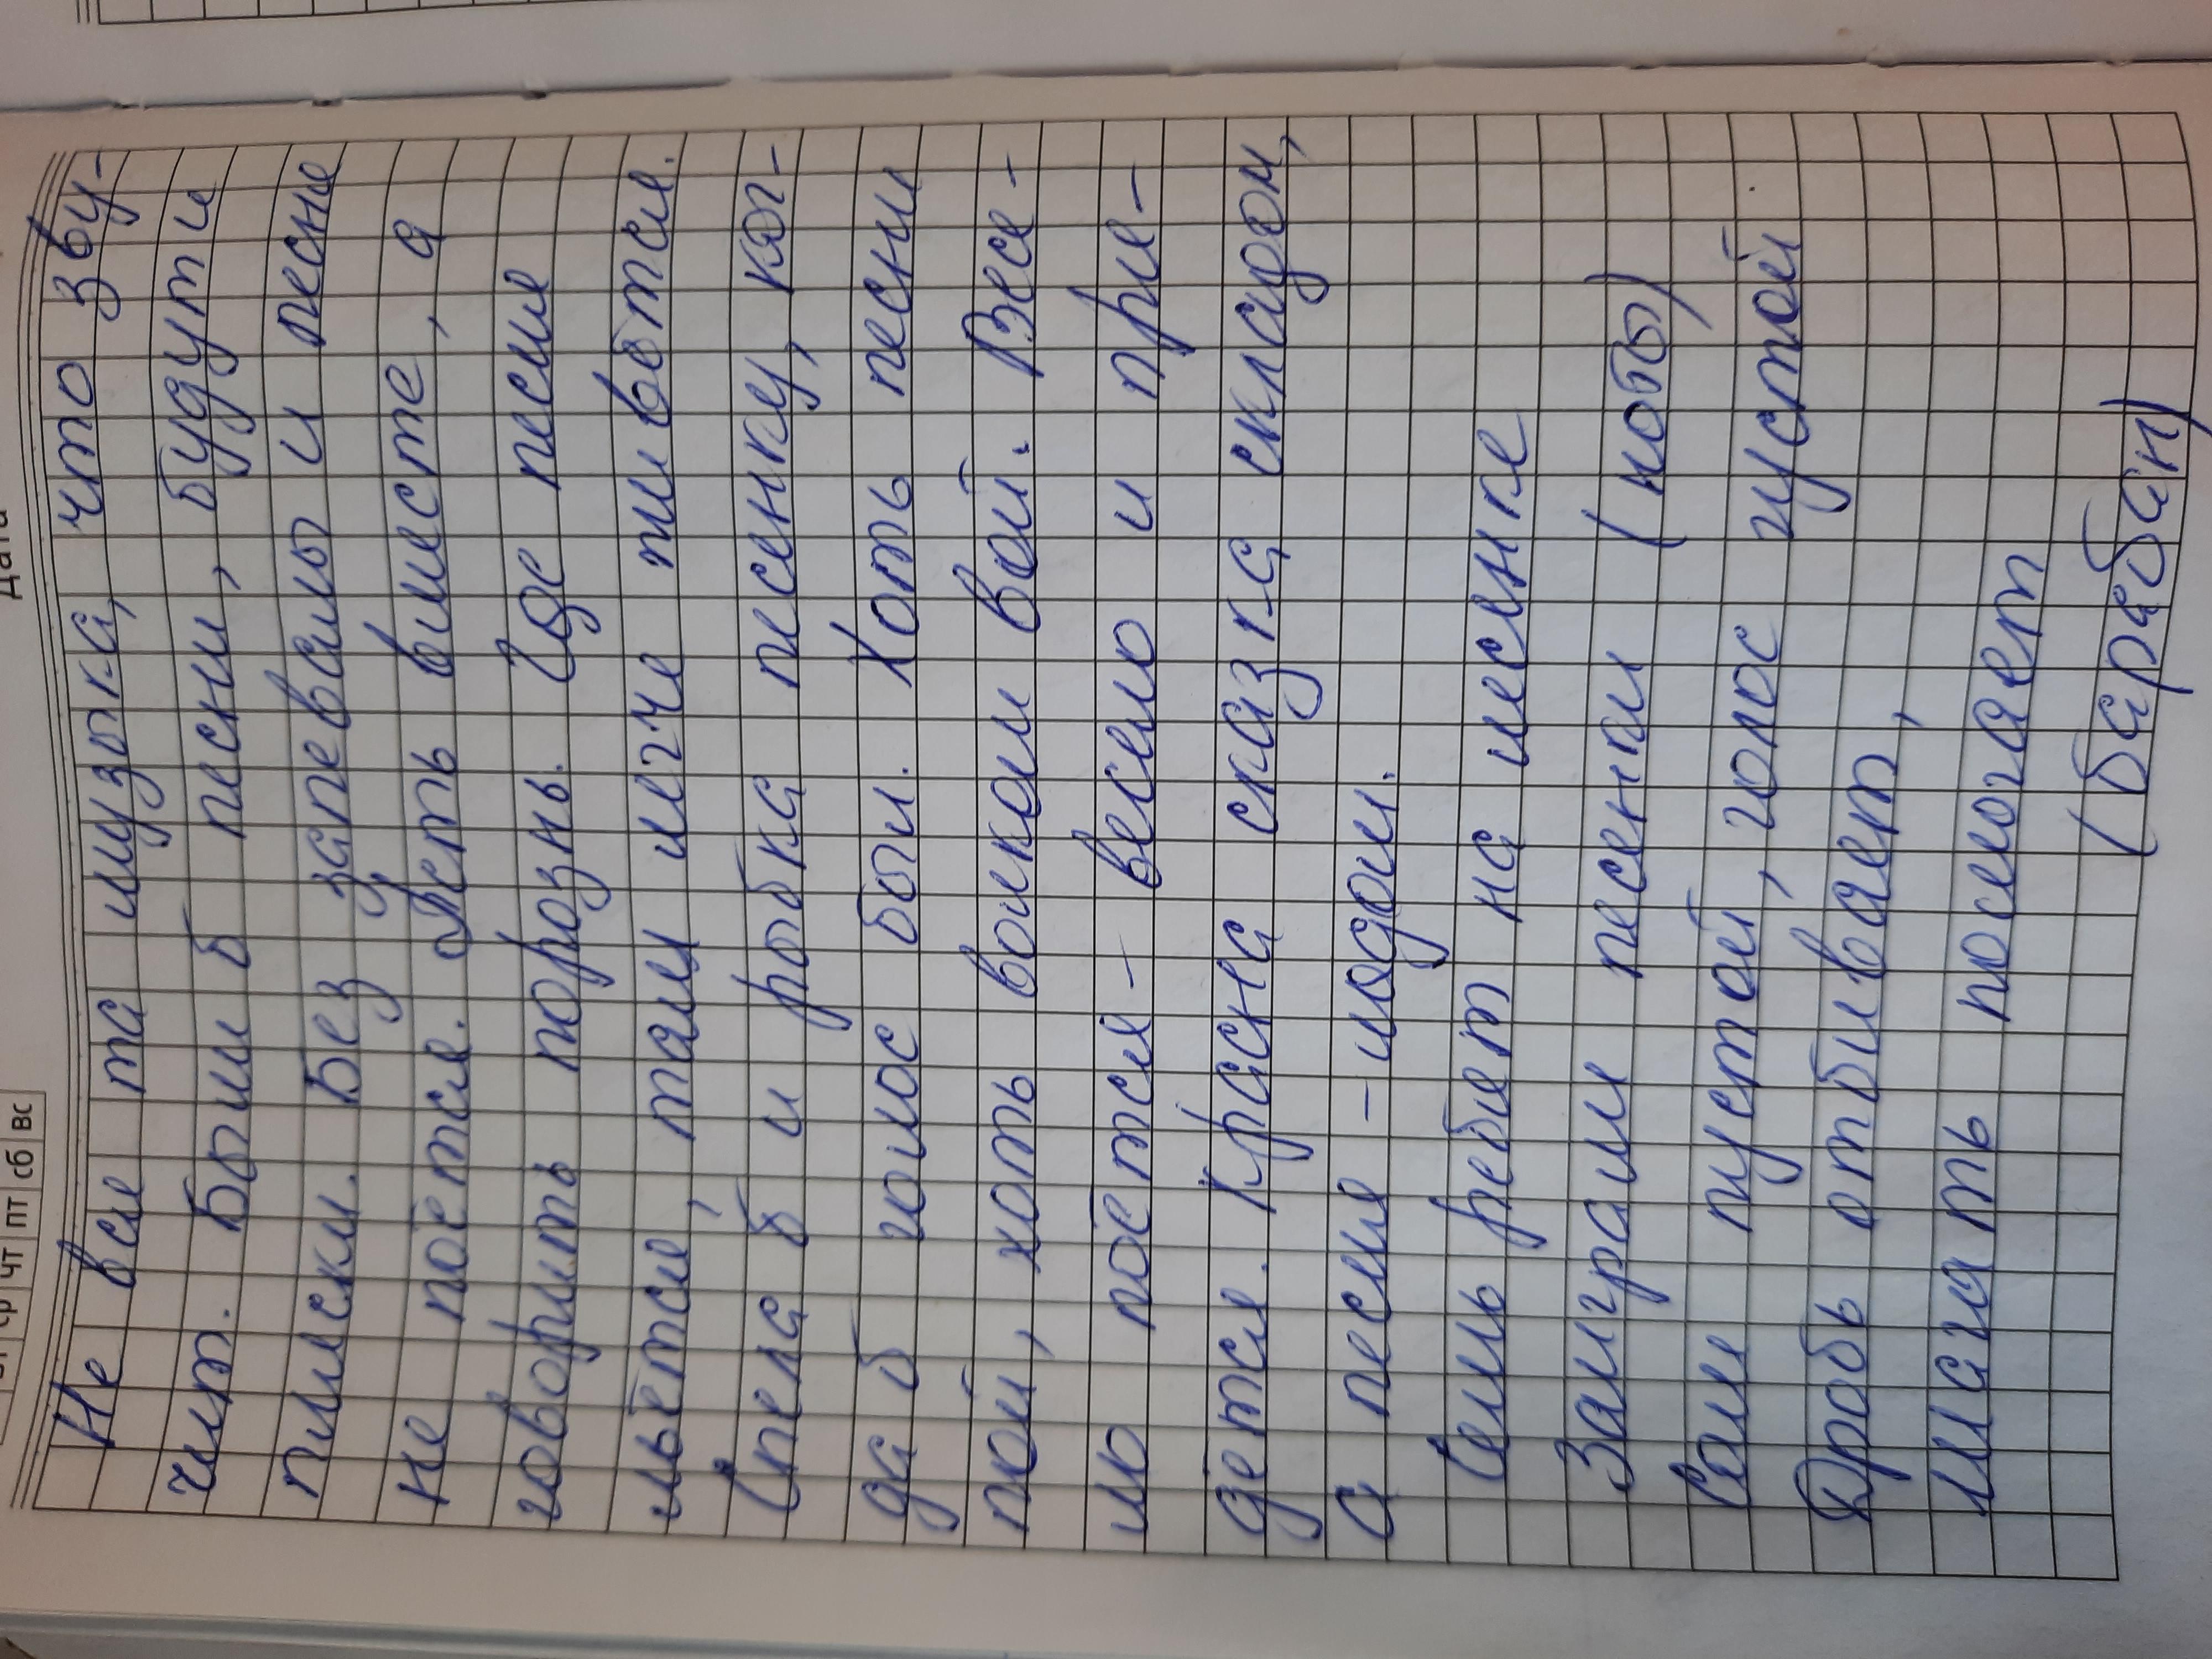 Дата
ср чт пт сб вс
Не вся та музыка, что зву-
чит. Были б песни, будут и
пляски. Без запевалы и песня
не поётся. Петь вместе, а
говорить порознь. Где песня
льётся, там легче живётся.
Спела б и рыбка песенку, ког-
да б голос был. Хоть песни
пой, хоть волком вой. Весе-
ло поётся - весело и пря-
дётся. Красна сказка складом,
а песня - ладом.
Семь ребят на лесенке
Заиграли песенки (ноты)
Сам пустой, голос густой
Дробь отбивает,
Шагать помогает
(барабан)